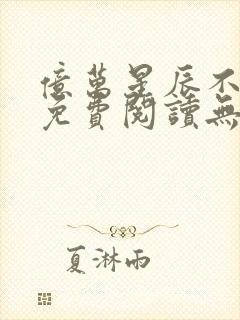 億萬星辰不
免費閱讀無
夏淋雨